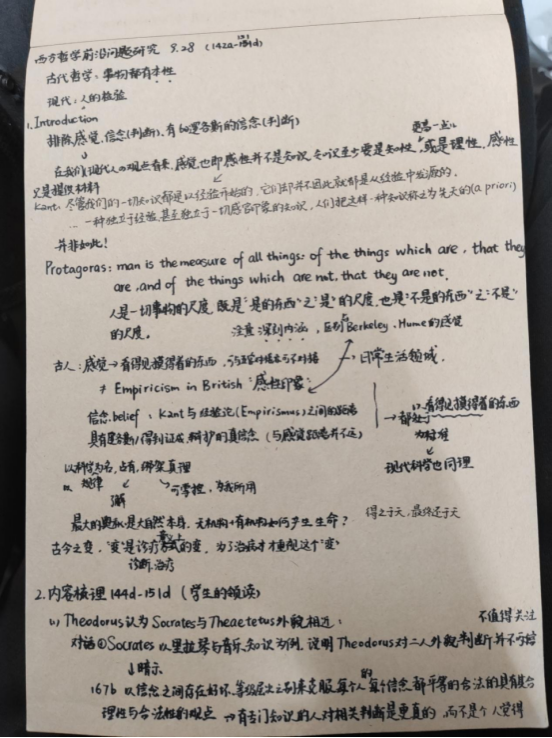 西方哲学前沿问题研究 9.28 (142a-151d)
古代哲学:事物都有本性
现代:人的检验
1. Introduction
排除感觉、信念(判断)、有logos的信念(判断)
更高一点
在我们现代人的观点看来,感觉也即感性并不是知识,知识至少要是知性,或是理性,感性
只是提供材料
Kant:尽管我们的一切知识都是以经验开始的,它们却并不因此就都是从经验中发源的。
… 一种独立于经验、甚至独立于一切感官印象的知识,人们把这样一种知识称之为先天的(a priori)
并非如此!
Protagoras: man is the measure of all things: of the things which are, that they
are, and of the things which are not, that they are not.
人是一切事物的尺度,既是"是的东西"之"是"的尺度,也是"不是的东西"之"不是"
的尺度。
注意深刻内涵,区别Berkeley、Hume的感觉
古人:感觉→看得见摸得着的东西
→日常生活领域
≠ Empiricism in British "感性印象"
信念belief:Kant与经验论(Empirismus)之间的距离
看得见摸得着的东西
→都处于
为标准
得到证成、辩护的真信念(与感觉距离并不远)
以科学为名,占有、绑架真理
现代科学也同理
规律
可掌控,为我所用
最大的奥秘是大自然本身,无机构+有机构如何产生生命?
得之于天,最终还于天
古今之变,"变"是诊疗方式的变,为了治病才重视这个"变"
诊断、治疗
2. 内容梳理 144d-151d (学生的领读)
(1) Theodorus认为Socrates与Theaetetus外貌相近:
不值得关注
对话①Socrates以里拉琴与音乐知识为例,说明Theodorus对二人外貌判断并不专擅
↓暗示
167b 以信念之间存在好坏、等级层次之别来克服每个人的每个信念都平等的合法的具有其合
理性与合法性的观点 →有专门知识的人对相关判断是更真的,而不是个人觉得